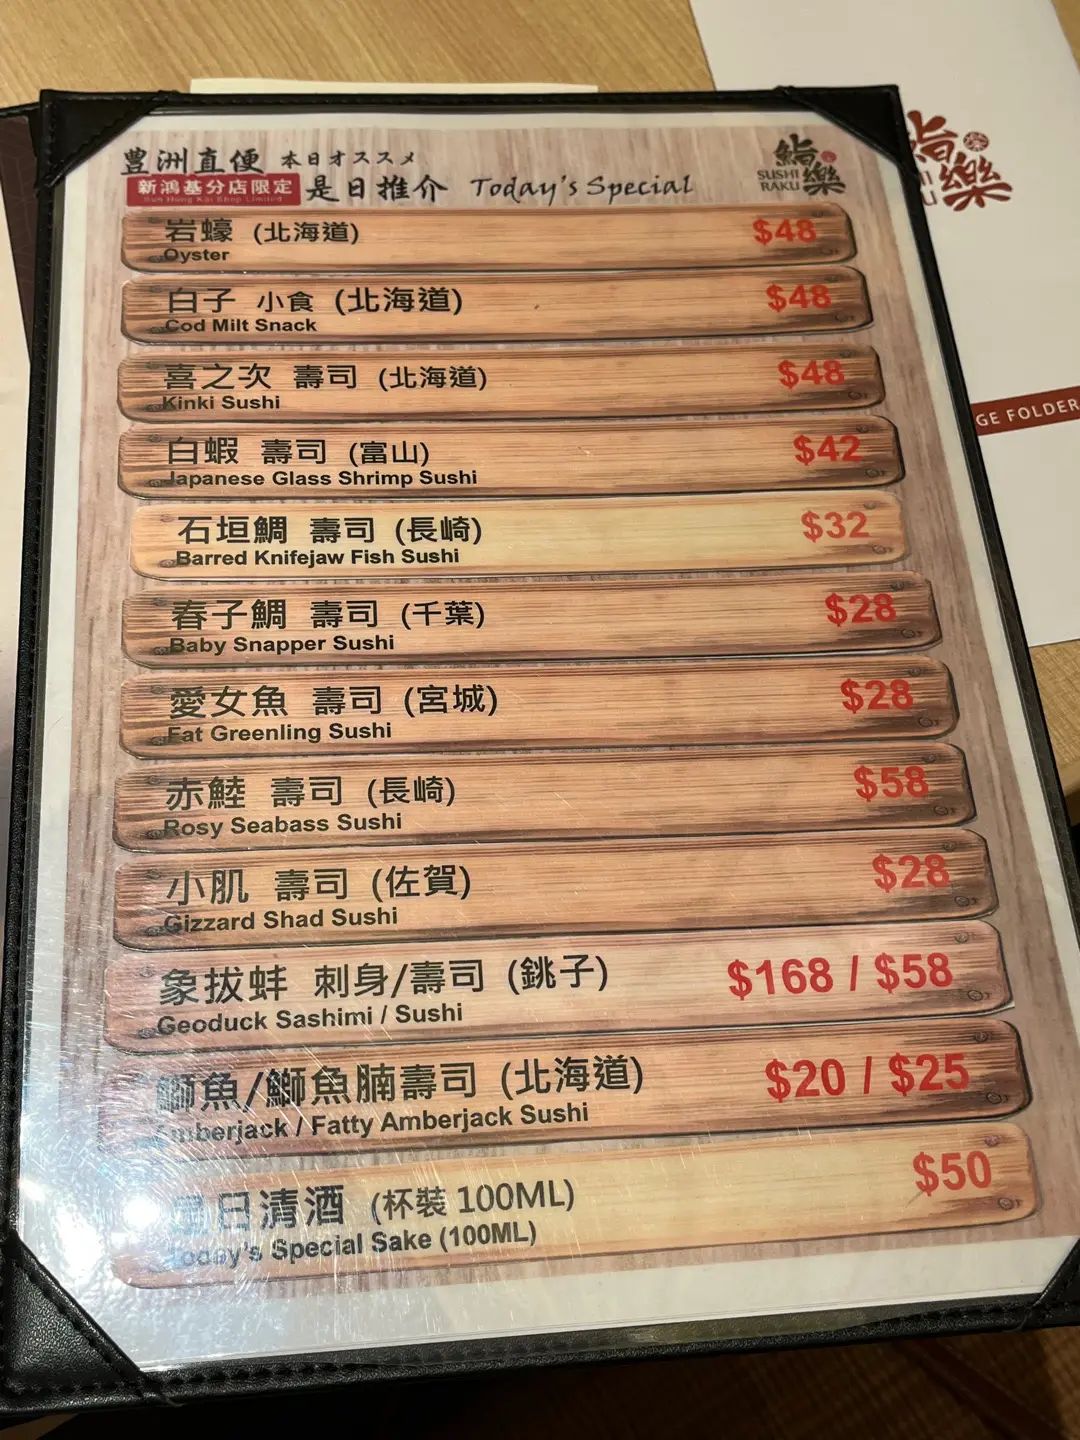 豊洲直便 本日オススメ
新鴻基分店限定 是日推介 Today's Special
Sun Hung Kai Shop Limited
鮨樂
SUSHI
RAKU
岩蠔 (北海道) $48
Oyster
白子 小食 (北海道) $48
Cod Milt Snack
喜之次 壽司 (北海道) $48
Kinki Sushi
白蝦 壽司 (富山) $42
Japanese Glass Shrimp Sushi
石垣鯛 壽司 (長崎) $32
Barred Knifejaw Fish Sushi
春子鯛 壽司 (千葉) $28
Baby Snapper Sushi
愛女魚 壽司 (宮城) $28
Fat Greenling Sushi
赤鯥 壽司 (長崎) $58
Rosy Seabass Sushi
小肌 壽司 (佐賀) $28
Gizzard Shad Sushi
象拔蚌 刺身/壽司 (銚子) $168 / $58
Geoduck Sashimi / Sushi
鰤魚/鰤魚腩壽司 (北海道) $20 / $25
Amberjack / Fatty Amberjack Sushi
是日清酒 (杯裝 100ML) $50
Today's Special Sake (100ML)
鮨樂
GE FOLDER